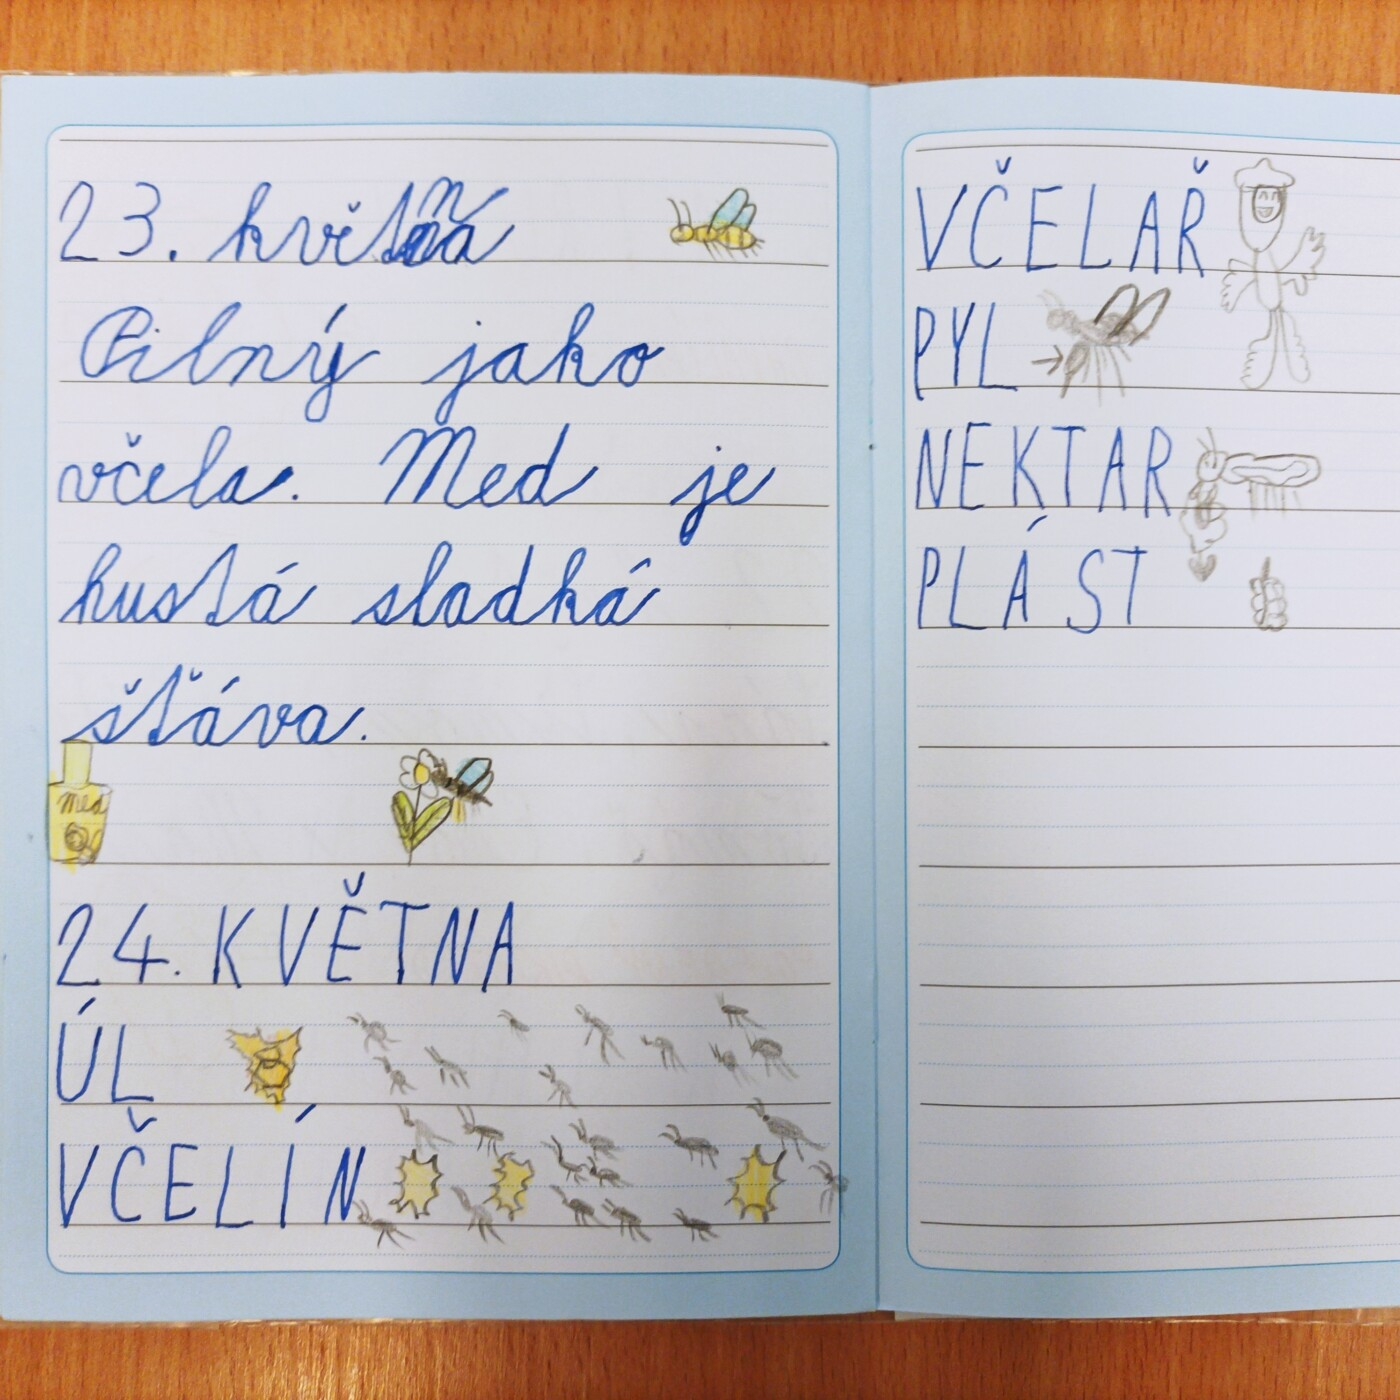 23. května
Pilný jako
včela. Med je
hustá sladká
šťáva.
Med
24. KVĚTNA
ÚL
VČELÍN
VČELAŘ
PYL
NEKTAR
PLÁST